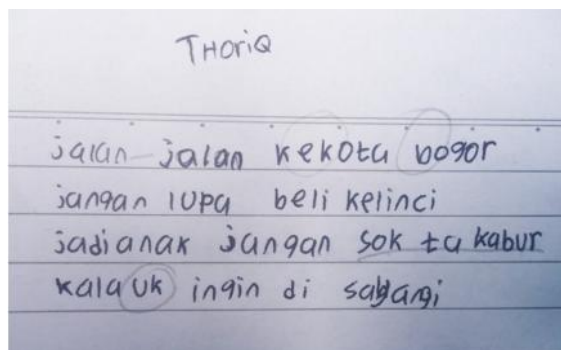 THoriQ
jalan jalan kekota bogor
jangan lupa beli kelinci
jadi anak jangan sok ta kabur
kalauk ingin di sayangi